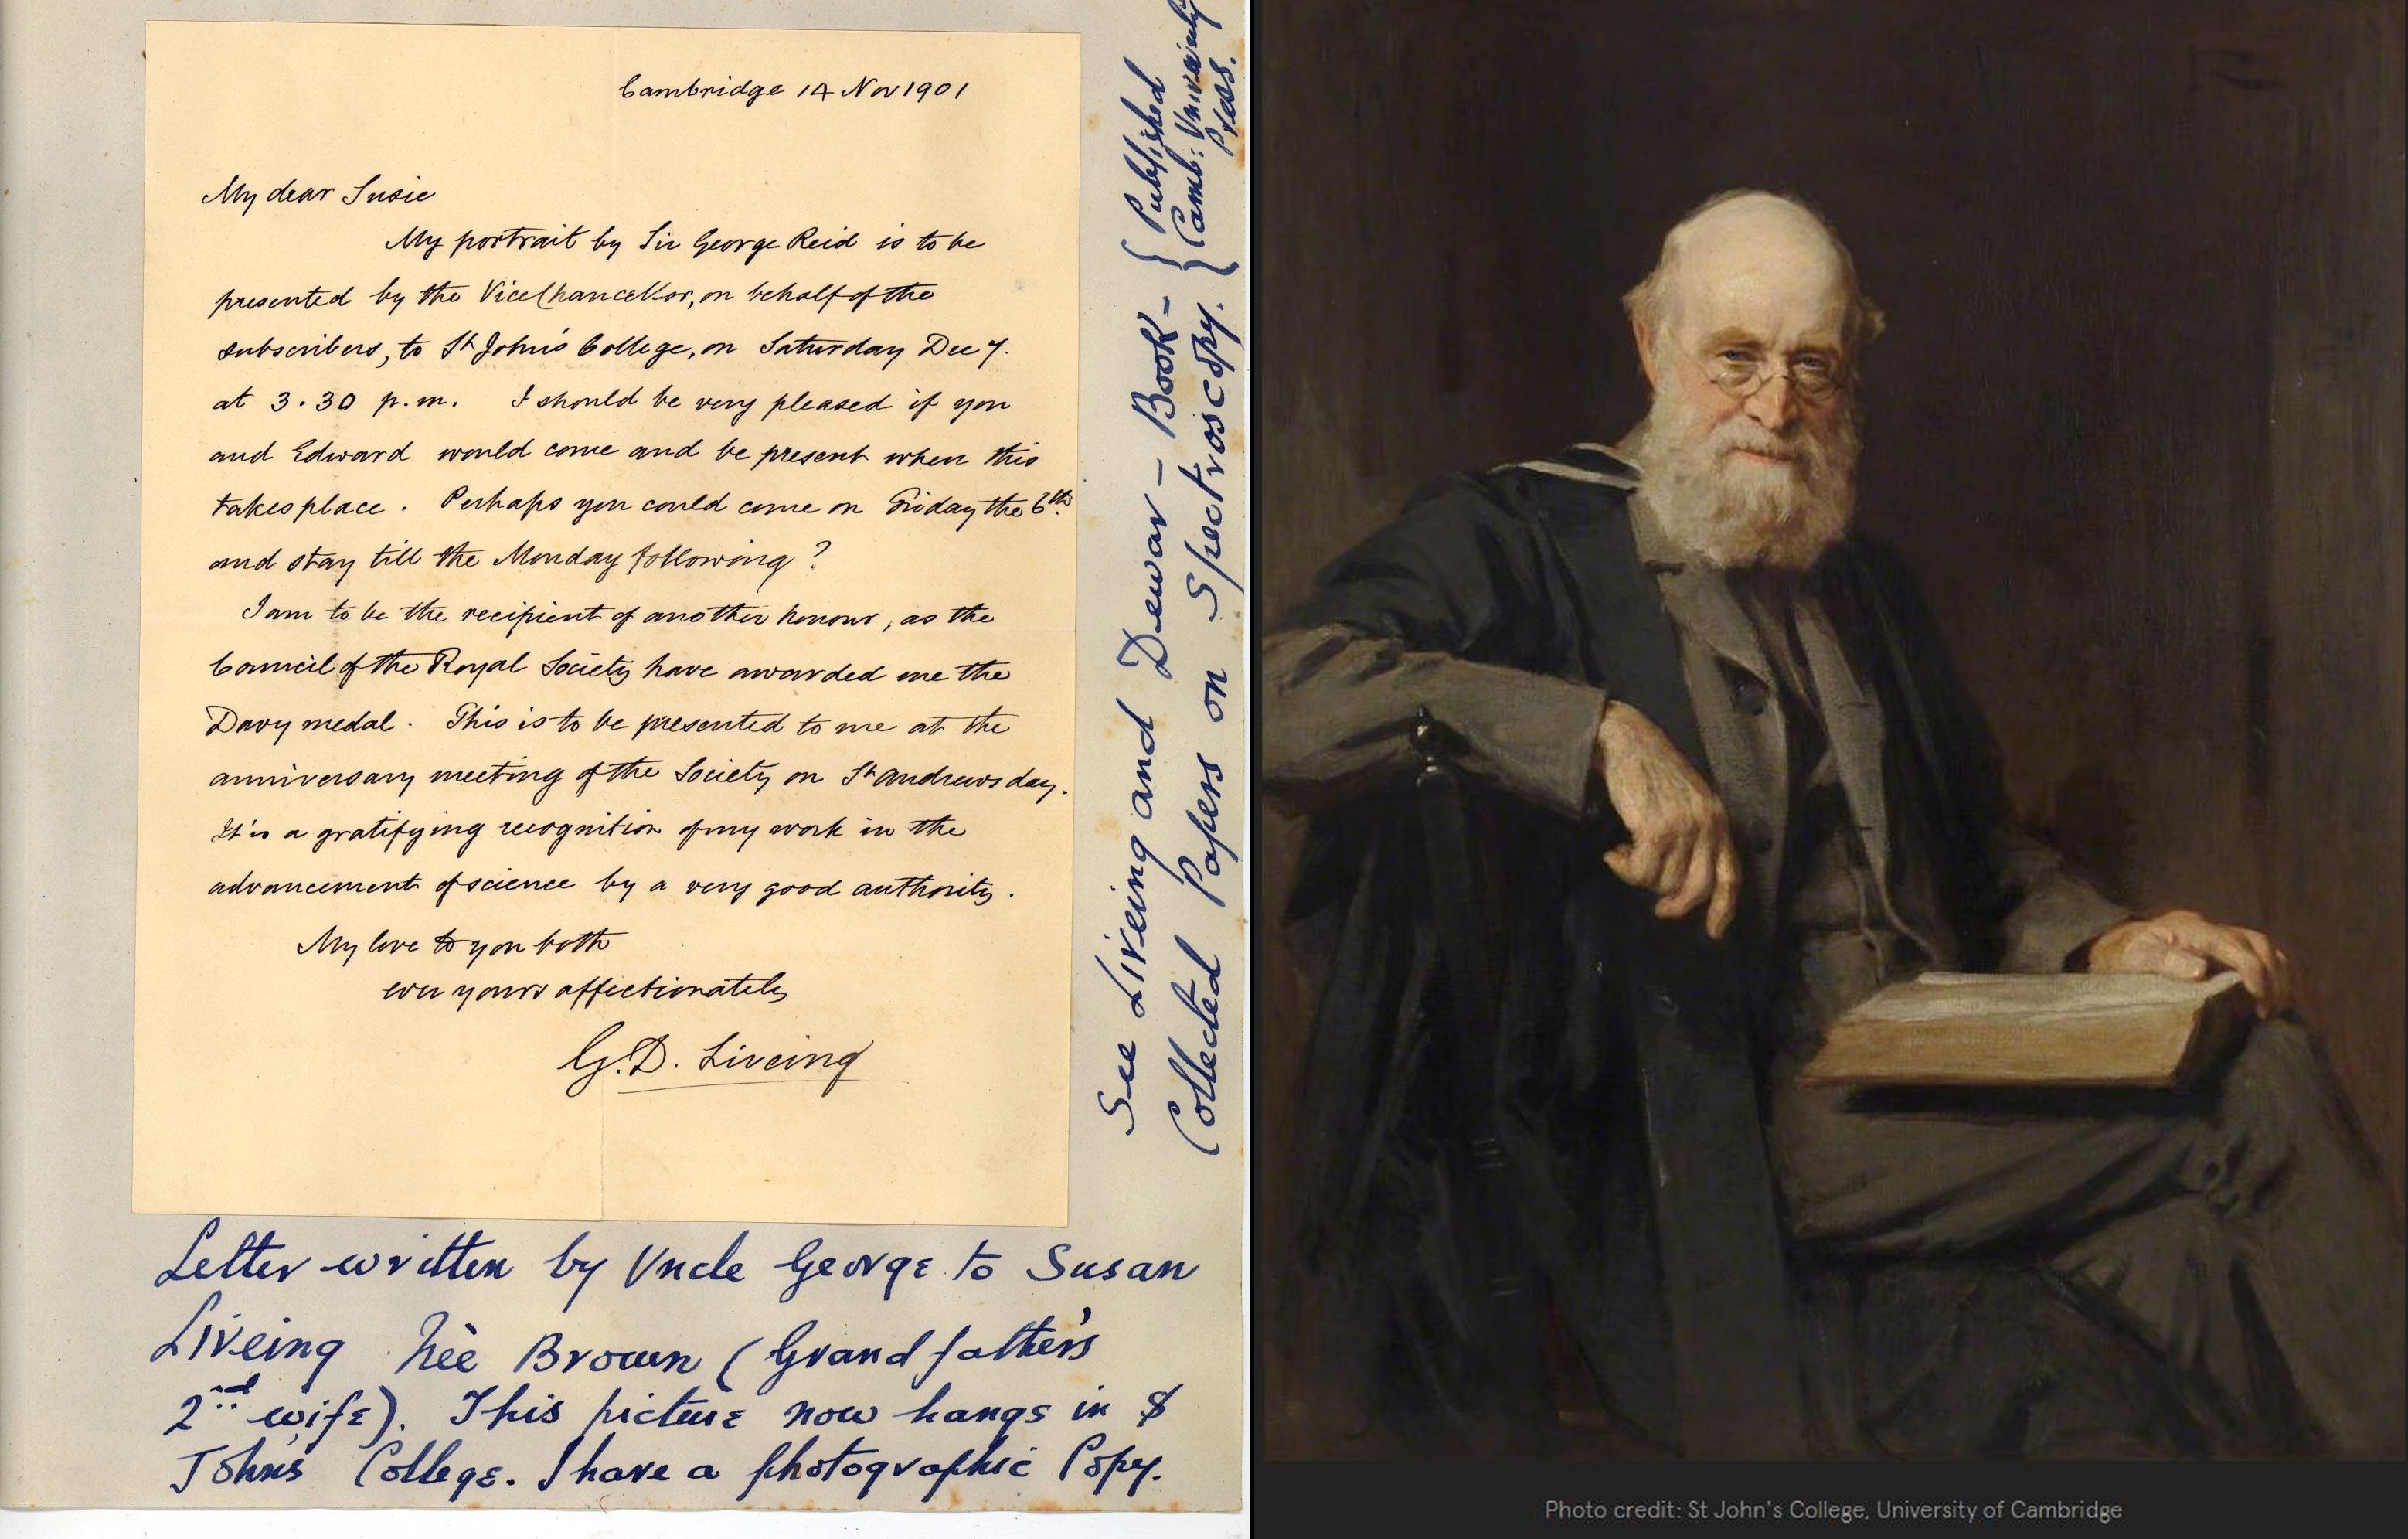 Cambridge 14 Nov 1901
My dear Susie
My portrait by Sir George Reid is to be
presented by the Vice Chancellor, on behalf of the
subscribers, to St John's College, on Saturday Dec 7.
at 3.30 p.m. I should be very pleased if you
and Edward would come and be present when this
takes place. Perhaps you could come on Friday the 6th.
and stay till the Monday following?
I am to be the recipient of another honour, as the
Council of the Royal Society have awarded me the
Davy medal. This is to be presented to me at the
anniversary meeting of the Society on St Andrews day.
It is a gratifying recognition of my work in the
advancement of science by a very good authority.
My love to you both
ever yours affectionately
G.D. Liveing
See Liveing and Dewar - Book - { Published
Collected Papers on Spectroscopy. { Camb: University
Press.
Letter written by Uncle George to Susan
Liveing Nèe Brown (Grandfather's
2nd wife). This picture now hangs in St
John's College. I have a photographic Copy.
Photo credit: St John's College, University of Cambridge